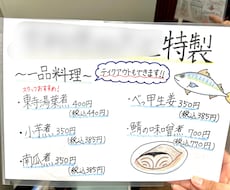 特製
～一品料理～
テイクアウトもできます!!
スタッフおすすめ!
400円
(税込440円)
・小芋煮 350円
(税込385円)
・南瓜煮 350円
(税込385円)
・べっ甲生姜 350円
(税込385円)
・鯖の味噌煮 700円
(税込770円)